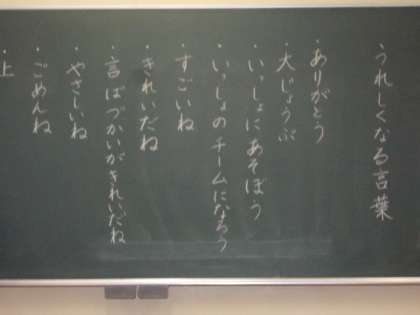 うれしくなる言葉
・ありがとう
・大じょうぶ
・いっしょにあそぼう
・いっしょのチームになろう
・すごいね
・きれいだね
・言ばづかいがきれいだね
・やさしいね
・ごめんね
・上